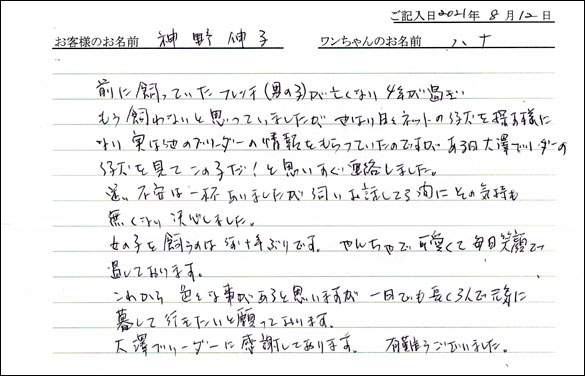 ご記入日 2021年 8月12日
お客様のお名前 神野伸子 ワンちゃんのお名前 ハナ
前に飼っていたフレンチ(男の子)が亡くなり4年が過ぎ
もう飼わないと思っていましたが やはり日々ネットの仔犬を探す様に
なり 実は他のブリーダーの情報をもらっていたのですが ある日大澤ブリーダーの
仔犬を見てこの子だ!と思いすぐ連絡しました。
遠い不安は一杯ありましたが伺いお話してる内にその気持も
無くなり決心しました。
女の子を飼うのは何十年ぶりです。 やんちゃで可愛くて毎日笑顔で
過しております。
これから色々な事があると思いますが 一日でも長く3人で元気に
暮して行きたいと願っております。
大澤ブリーダーに感謝しております。 有難うございました。